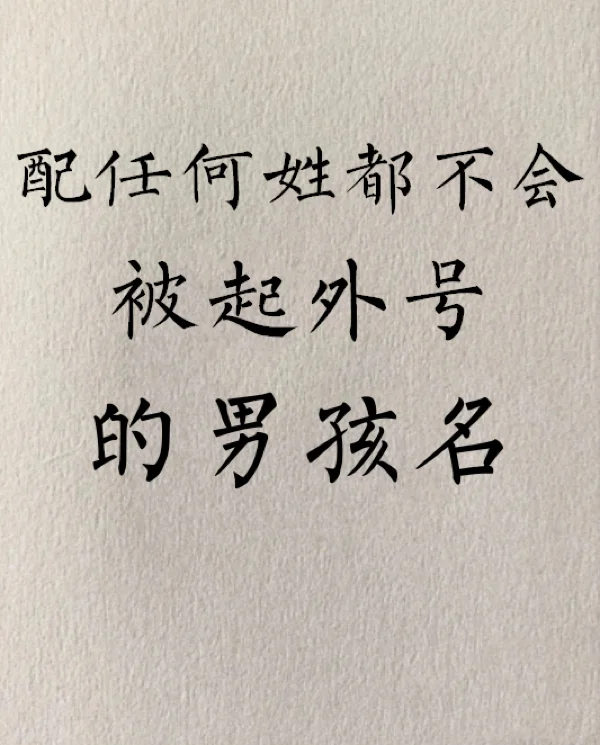 配任何姓都不会
被起外号
的男孩名